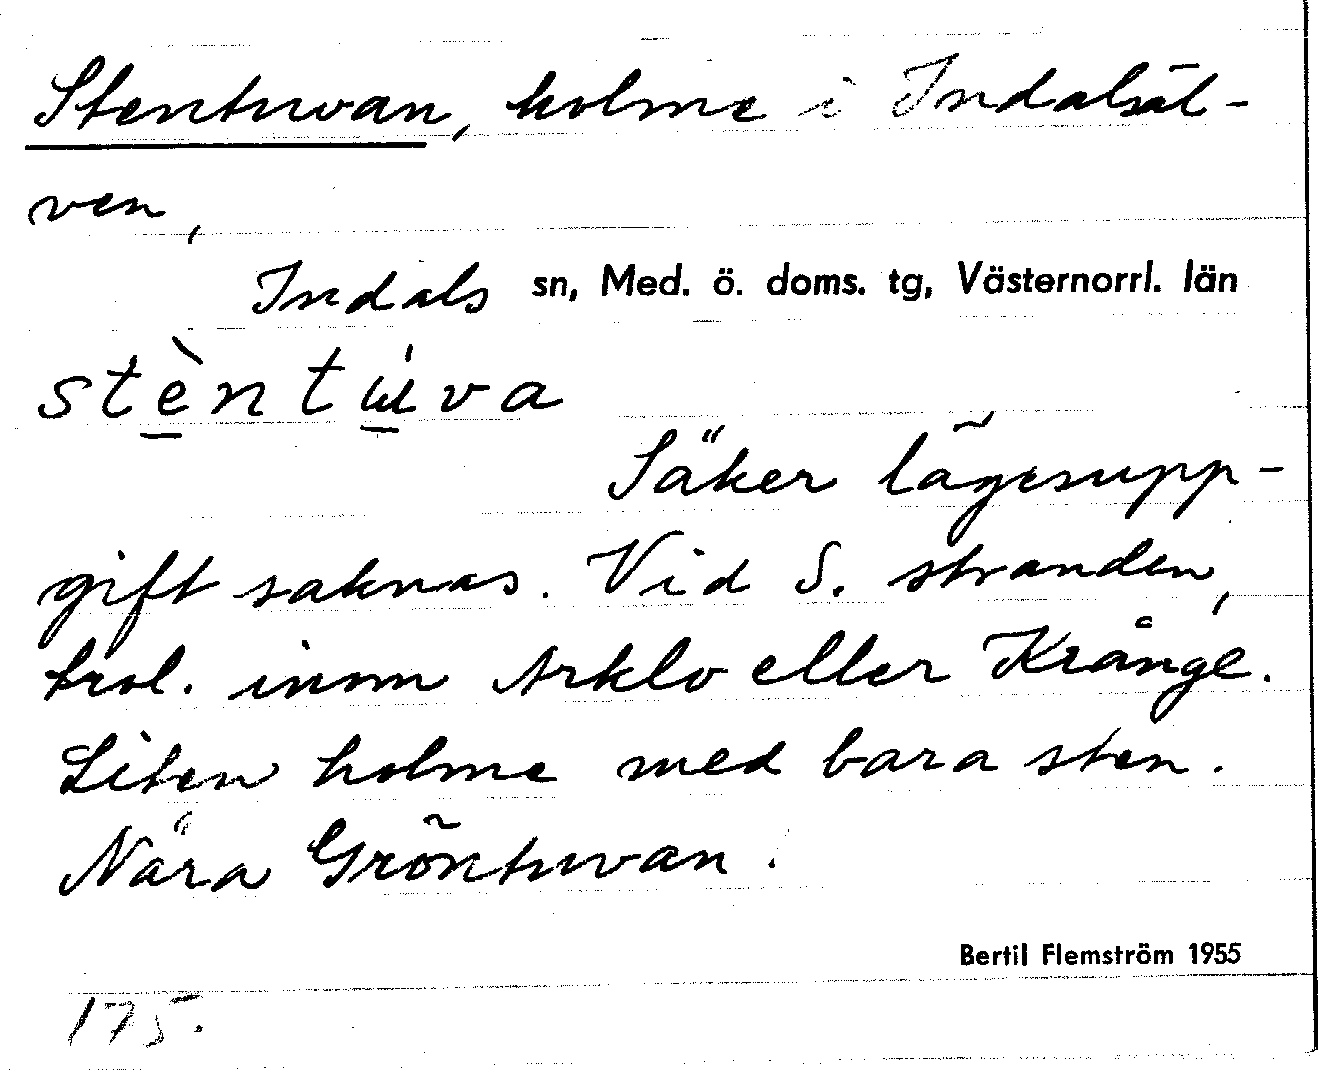 Stentuvan, holme i Indalsäl-
ven,
Indals sn, Med. ö. doms. tg, Västernorrl. län
stèntu̇va
Säker lägesupp-
gift saknas. Vid S. stranden,
trol. inom Arklo eller Krånge.
Liten holme med bara sten.
Nära Gröntuvan.
Bertil Flemström 1955
175.